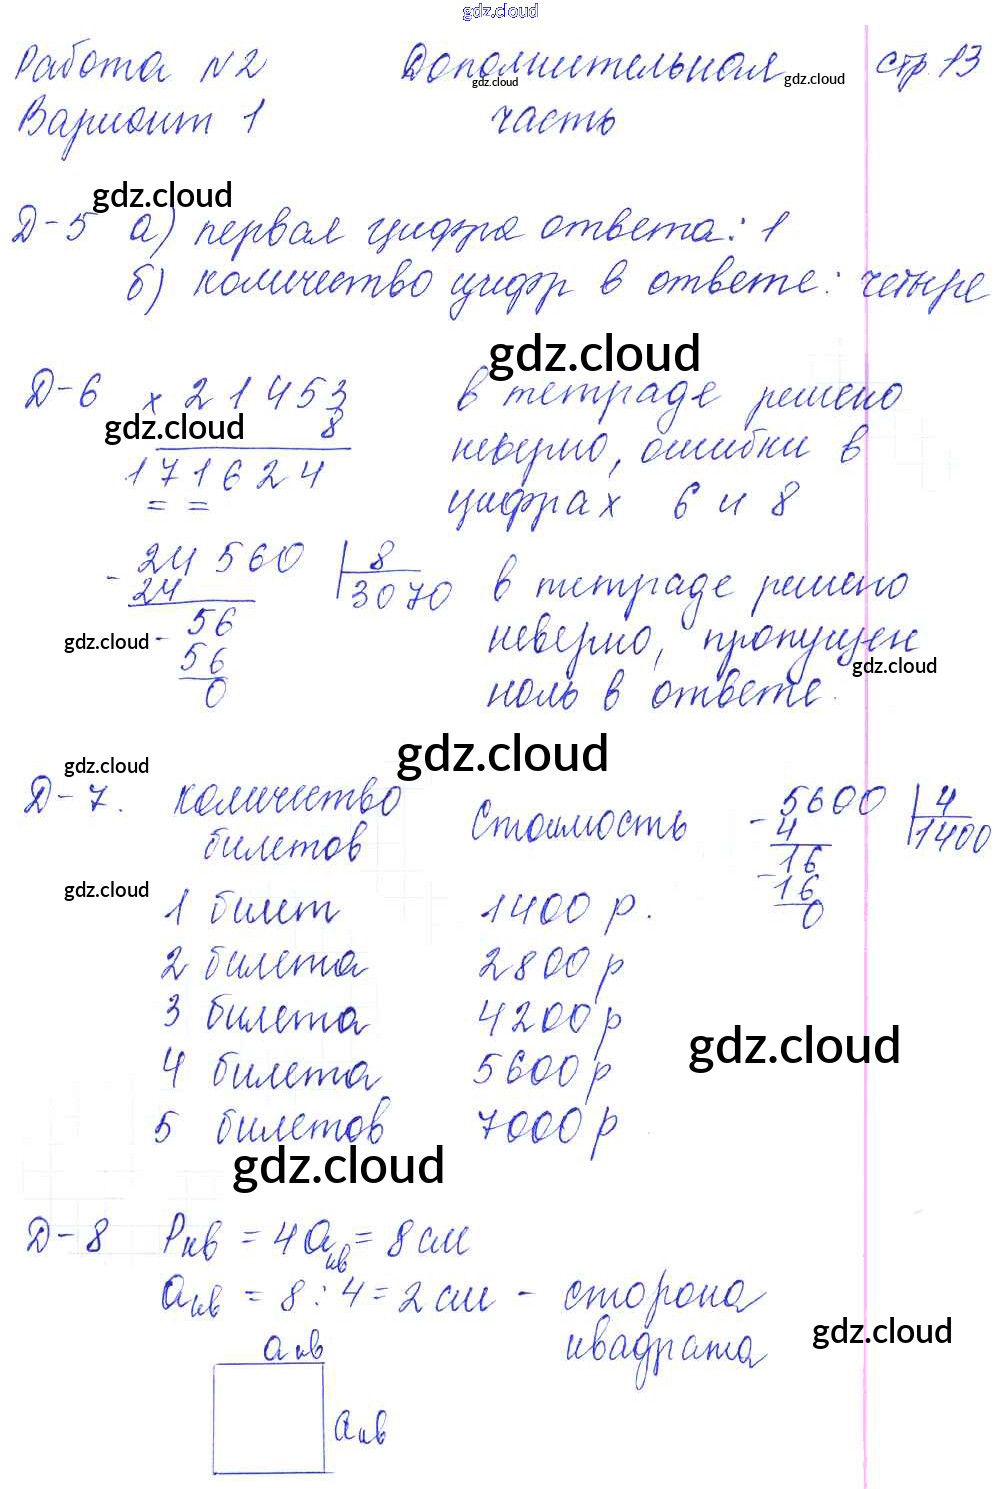 gdz.cloud
Работа №2 Дополнительная стр. 13
gdz.cloud gdz.cloud
Вариант 1 часть
gdz.cloud
Д-5 а) первая цифра ответа: 1
б) количество цифр в ответе: четыре
gdz.cloud
Д-6 × 21453 в тетраде решено
gdz.cloud 8 неверно, ошибки в
171624 цифрах 6 и 8
= =
- 24560 8
24 3070 в тетраде решено
gdz.cloud - 56 неверно, пропущен
56 gdz.cloud
0 ноль в ответе.
gdz.cloud
gdz.cloud
Д-7. количество Стоимость - 5600 4
билетов 4 1400
gdz.cloud - 16
16
1 билет 1400 р. 0
2 билета 2800 р
3 билета 4200 р
gdz.cloud
4 билета 5600 р
5 билетов 7000 р
gdz.cloud
Д-8 Pкв = 4aкв = 8 см
aкв = 8 : 4 = 2 см - сторона
квадрата
gdz.cloud
aкв
aкв